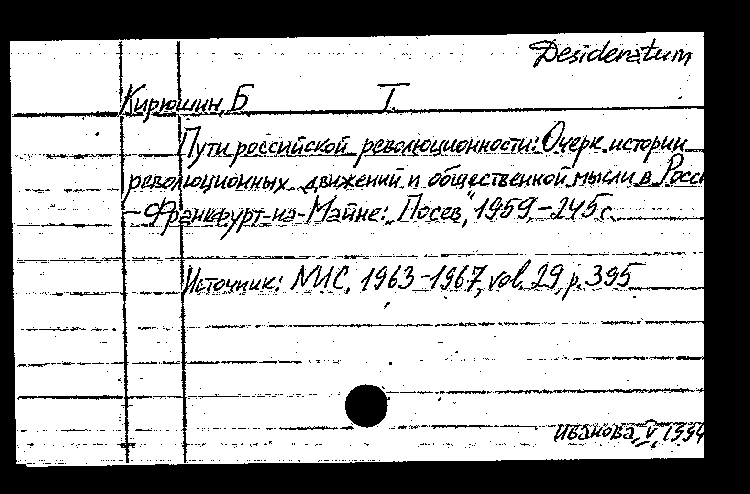 Desideratum
Кирюшин, Б Т.
Пути российской революционности: Очерк истории
революционных движений и общественной мысли в Росс
- Франкфурт-на-Майне: „Посев", 1959, - 245 с.
Источник: NUC, 1963-1967, vol. 29, p. 395
Иванова, V, 1994